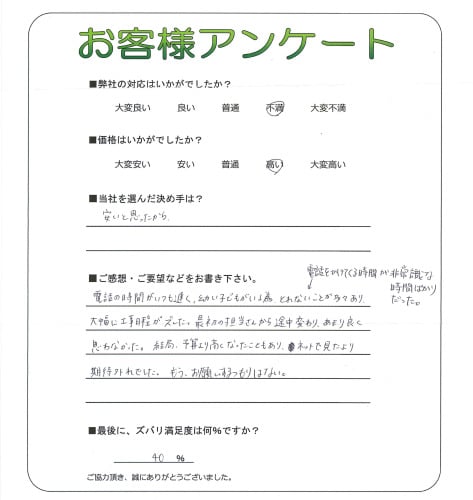 お客様アンケート
■弊社の対応はいかがでしたか？
大変良い 良い 普通 不満 大変不満
■価格はいかがでしたか？
大変安い 安い 普通 高い 大変高い
■当社を選んだ決め手は？
安いと思ったから。
■ご感想・ご要望などをお書き下さい。
電話をかけてくる時間が非常識な
時間ばかり
だった。
電話の時間がいつも遅く、幼い子どもがいる為、とれないことが多々あり、
大幅に工事日程がズレた。最初の担当さんから途中変わり、あまり良く
思わなかった。結局、予算より高くなったこともあり、ネットで見たより
期待外れでした。もう、お願いするつもりはない。
■最後に、ズバリ満足度は何%ですか？
40 %
ご協力頂き、誠にありがとうございました。